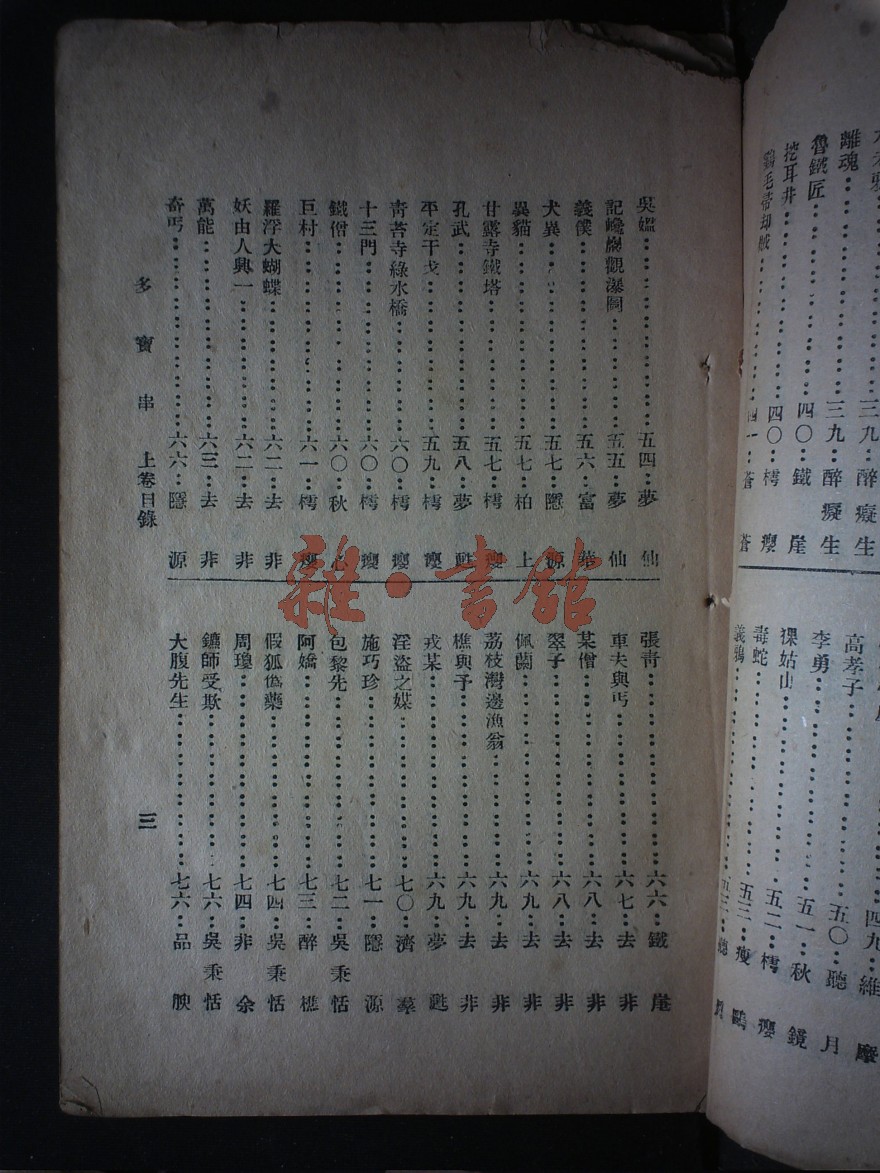 離魂……三九…醉癡生
魯鐵匠……三九…醉癡生
挖耳井……四〇…鐵崖
四〇…樗癭
四一…蒼蒼
四九…維摩
高孝子……五〇…聽月
李勇……五一…秋鏡
裸姑山……五二…樗癭
毒蛇……五三…瘦鷗
義鴉
吳媼……五四…夢仙
記巉巖觀瀑圖……五五…夢仙
義僕……五六…富華
犬異……五七…隱源
異貓……五七…柏上
甘露寺鐵塔……五七…樗癭
孔武……五八…夢甦
平定干戈……五九…樗癭
靑苔寺綠水橋……六〇…樗癭
十三門……六〇…樗癭
鐵僧……六〇…秋心
巨村……六一…樗癭
羅浮大蝴蝶……六二…去非
妖由人興一……六二…去非
萬能……六三…去非
奇丐……六六…隱源
張靑……六六…鐵崖
車夫與丐……六七…去非
某僧……六八…去非
翠子……六八…去非
佩蘭……六九…去非
荔枝灣邊漁翁……六九…去非
樵與予……六九…去非
戎某……六九…夢甦
淫盜之媒……七〇…濟羣
施巧珍……七一…隱源
包黎先……七二…吳秉恬
阿嬌……七三…醉樵
假狐僞藥……七四…吳秉恬
周瓊……七四…非余
鑣師受欺……七六…吳秉恬
大腹先生……七六…品腴
多寶串　上卷目錄　三
雜·書館